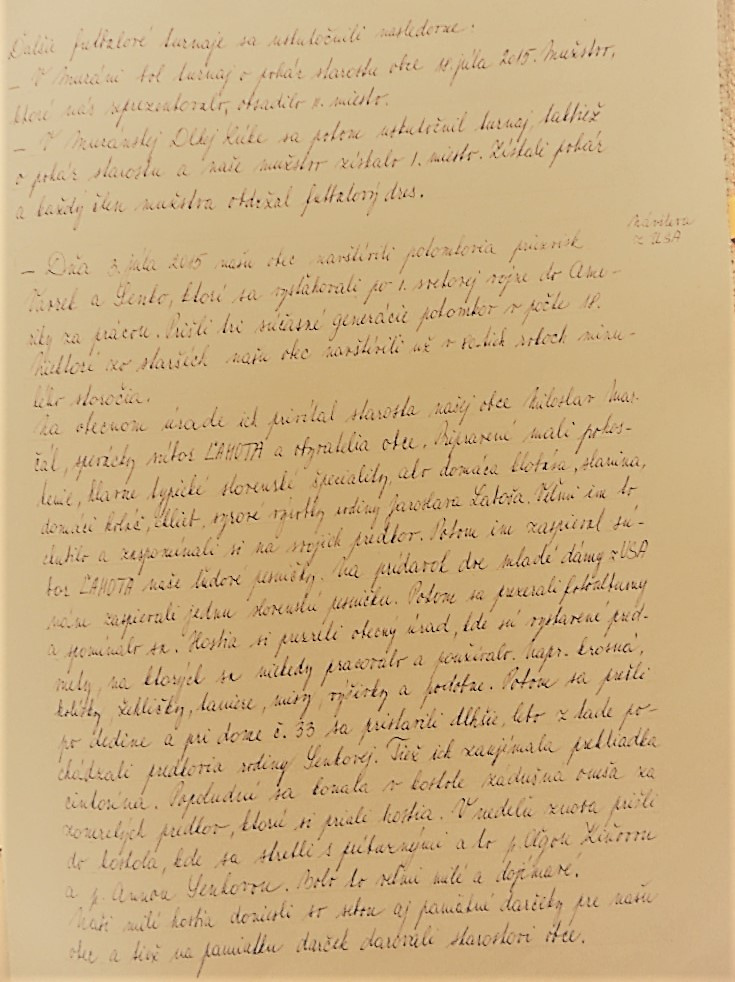 Ďalšie futbalové turnaje sa uskutočnili nasledovne:
– V Muráni bol turnaj o pohár starostu obce 18. júla 2015. Mužstvo,
ktoré nás reprezentovalo, obsadilo 4. miesto.
– V Muránskej Dlhej Lúke sa potom uskutočnil turnaj, taktiež
o pohár starostu a naše mužstvo získalo 1. miesto. Získali pohár
a každý člen mužstva obdržal futbalový dres.
Návšteva
z USA
– Dňa 3. júla 2015 našu obec navštívili potomkovia priezvisk
a Senko, ktorí sa vysťahovali po 1. svetovej vojne do Ame-
riky za prácou. Prišli tri súčasné generácie potomkov v počte 18.
Niektorí zo starších našu obec navštívili už v 80-tich rokoch minu-
lého storočia.
Na obecnom úrade ich privítal starosta našej obce Miloslav Mar-
čál, spevácky súbor ĽAHOTA a obyvatelia obce. Pripravené mali pohos-
tenie, hlavne typické slovenské špeciality, ako domáca klobása, slanina,
domáci koláč, chlieb, syrové výrobky rodiny Jaroslava Latoňa. Veľmi im to
chutilo a zaspomínali si na svojich predkov. Potom im zaspieval sú-
bor ĽAHOTA naše ľudové pesničky. Na prídavok dve mladé dámy z USA
nám zaspievali jednu slovenskú pesničku. Potom sa prezerali
a spomínalo sa. Hostia si prezreli obecný úrad, kde sú vystavené pred-
mety, na ktorých sa niekedy pracovalo a používalo. Napr. krosná,
kolísky, žehličky, taniere, misy, výšivky a podobne. Potom sa prešli
po dedine a pri dome č. 33 sa pristavili dlhšie, lebo z tade po-
chádzali predkovia rodiny Senkovej. Tiež ich zaujímala prehliadka
cintorína. Popoludní sa konala v kostole zádušná omša za
zomrelých predkov, ktorú si priali hostia. V nedeľu znova prišli
do kostola, kde sa stretli s príbuznými a to p. Oľgou
a p. Annou Senkovou. Bolo to veľmi milé a dojímavé.
Naši milí hostia doniesli so sebou aj pamätné darčeky pre našu
obec a tiež na pamiatku darček darovali starostovi obce.